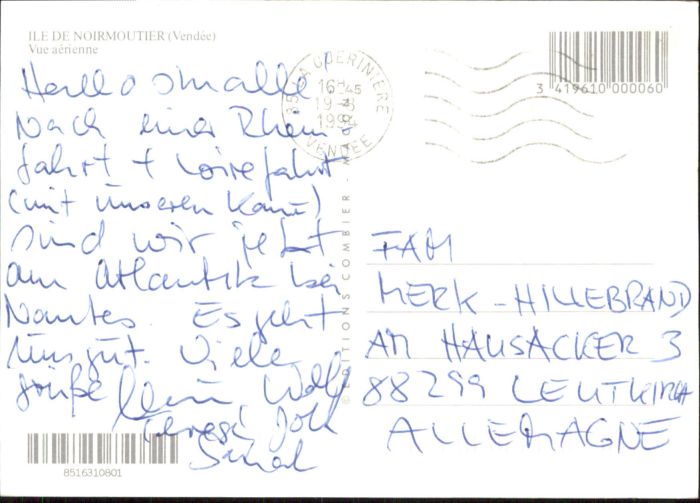 ILE DE NOIRMOUTIER (Vendée)
Vue aérienne
Hallo ihr alle!
Nach einer Rhein-
fahrt + Loirefahrt
(mit unseren Kanu)
sind wir jetzt
am Atlantik bei
Nantes. Es geht
uns gut. Viele
Grüße Wolf
Sarah
85 LA GUERINIERE
16H45
19-8
1994
VENDEE
3 419610 000060
© EDITIONS COMBIER - MACON
FAM
MERK-HILLEBRAND
AM HAUSACKER 3
88299 LEUTKIRCH
ALLEMAGNE
8516310801